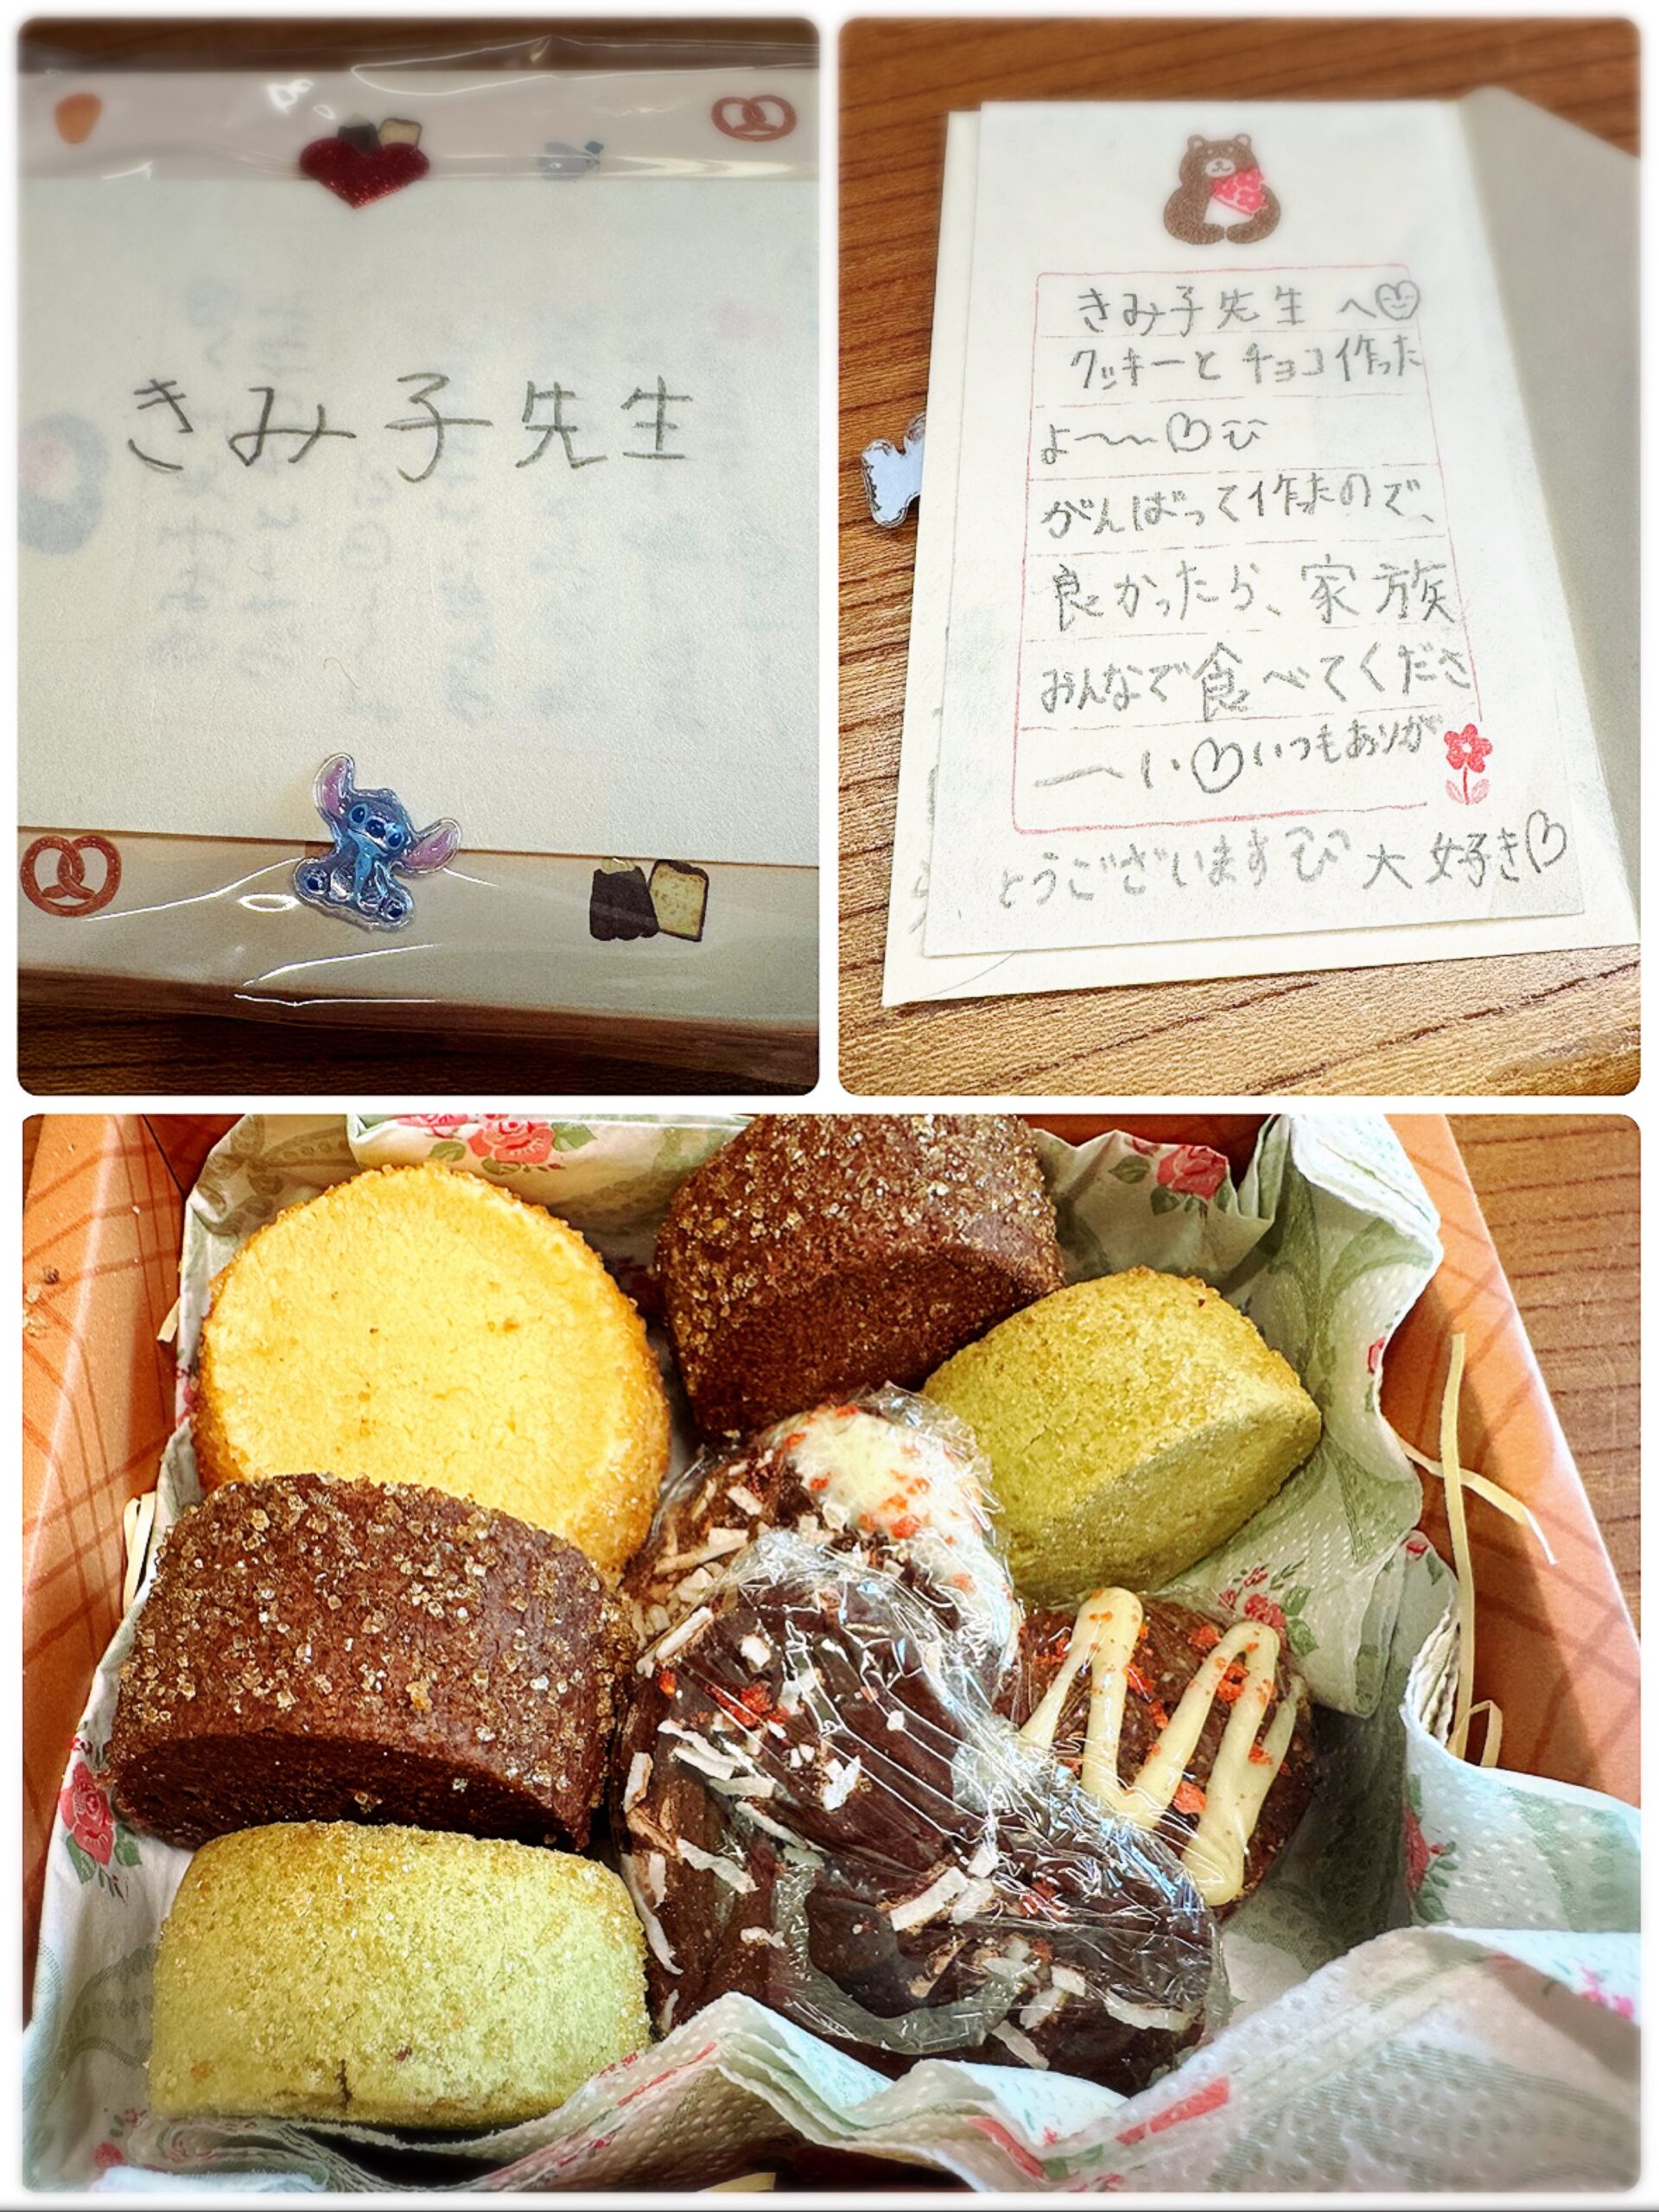 きみ子先生
きみ子先生へ♡
クッキーとチョコ作った
よ〜〜♡
がんばって作たので、
良かったら、家族
みんなで食べてくださ
〜い♡いつもありが
とうございます 大好き♡